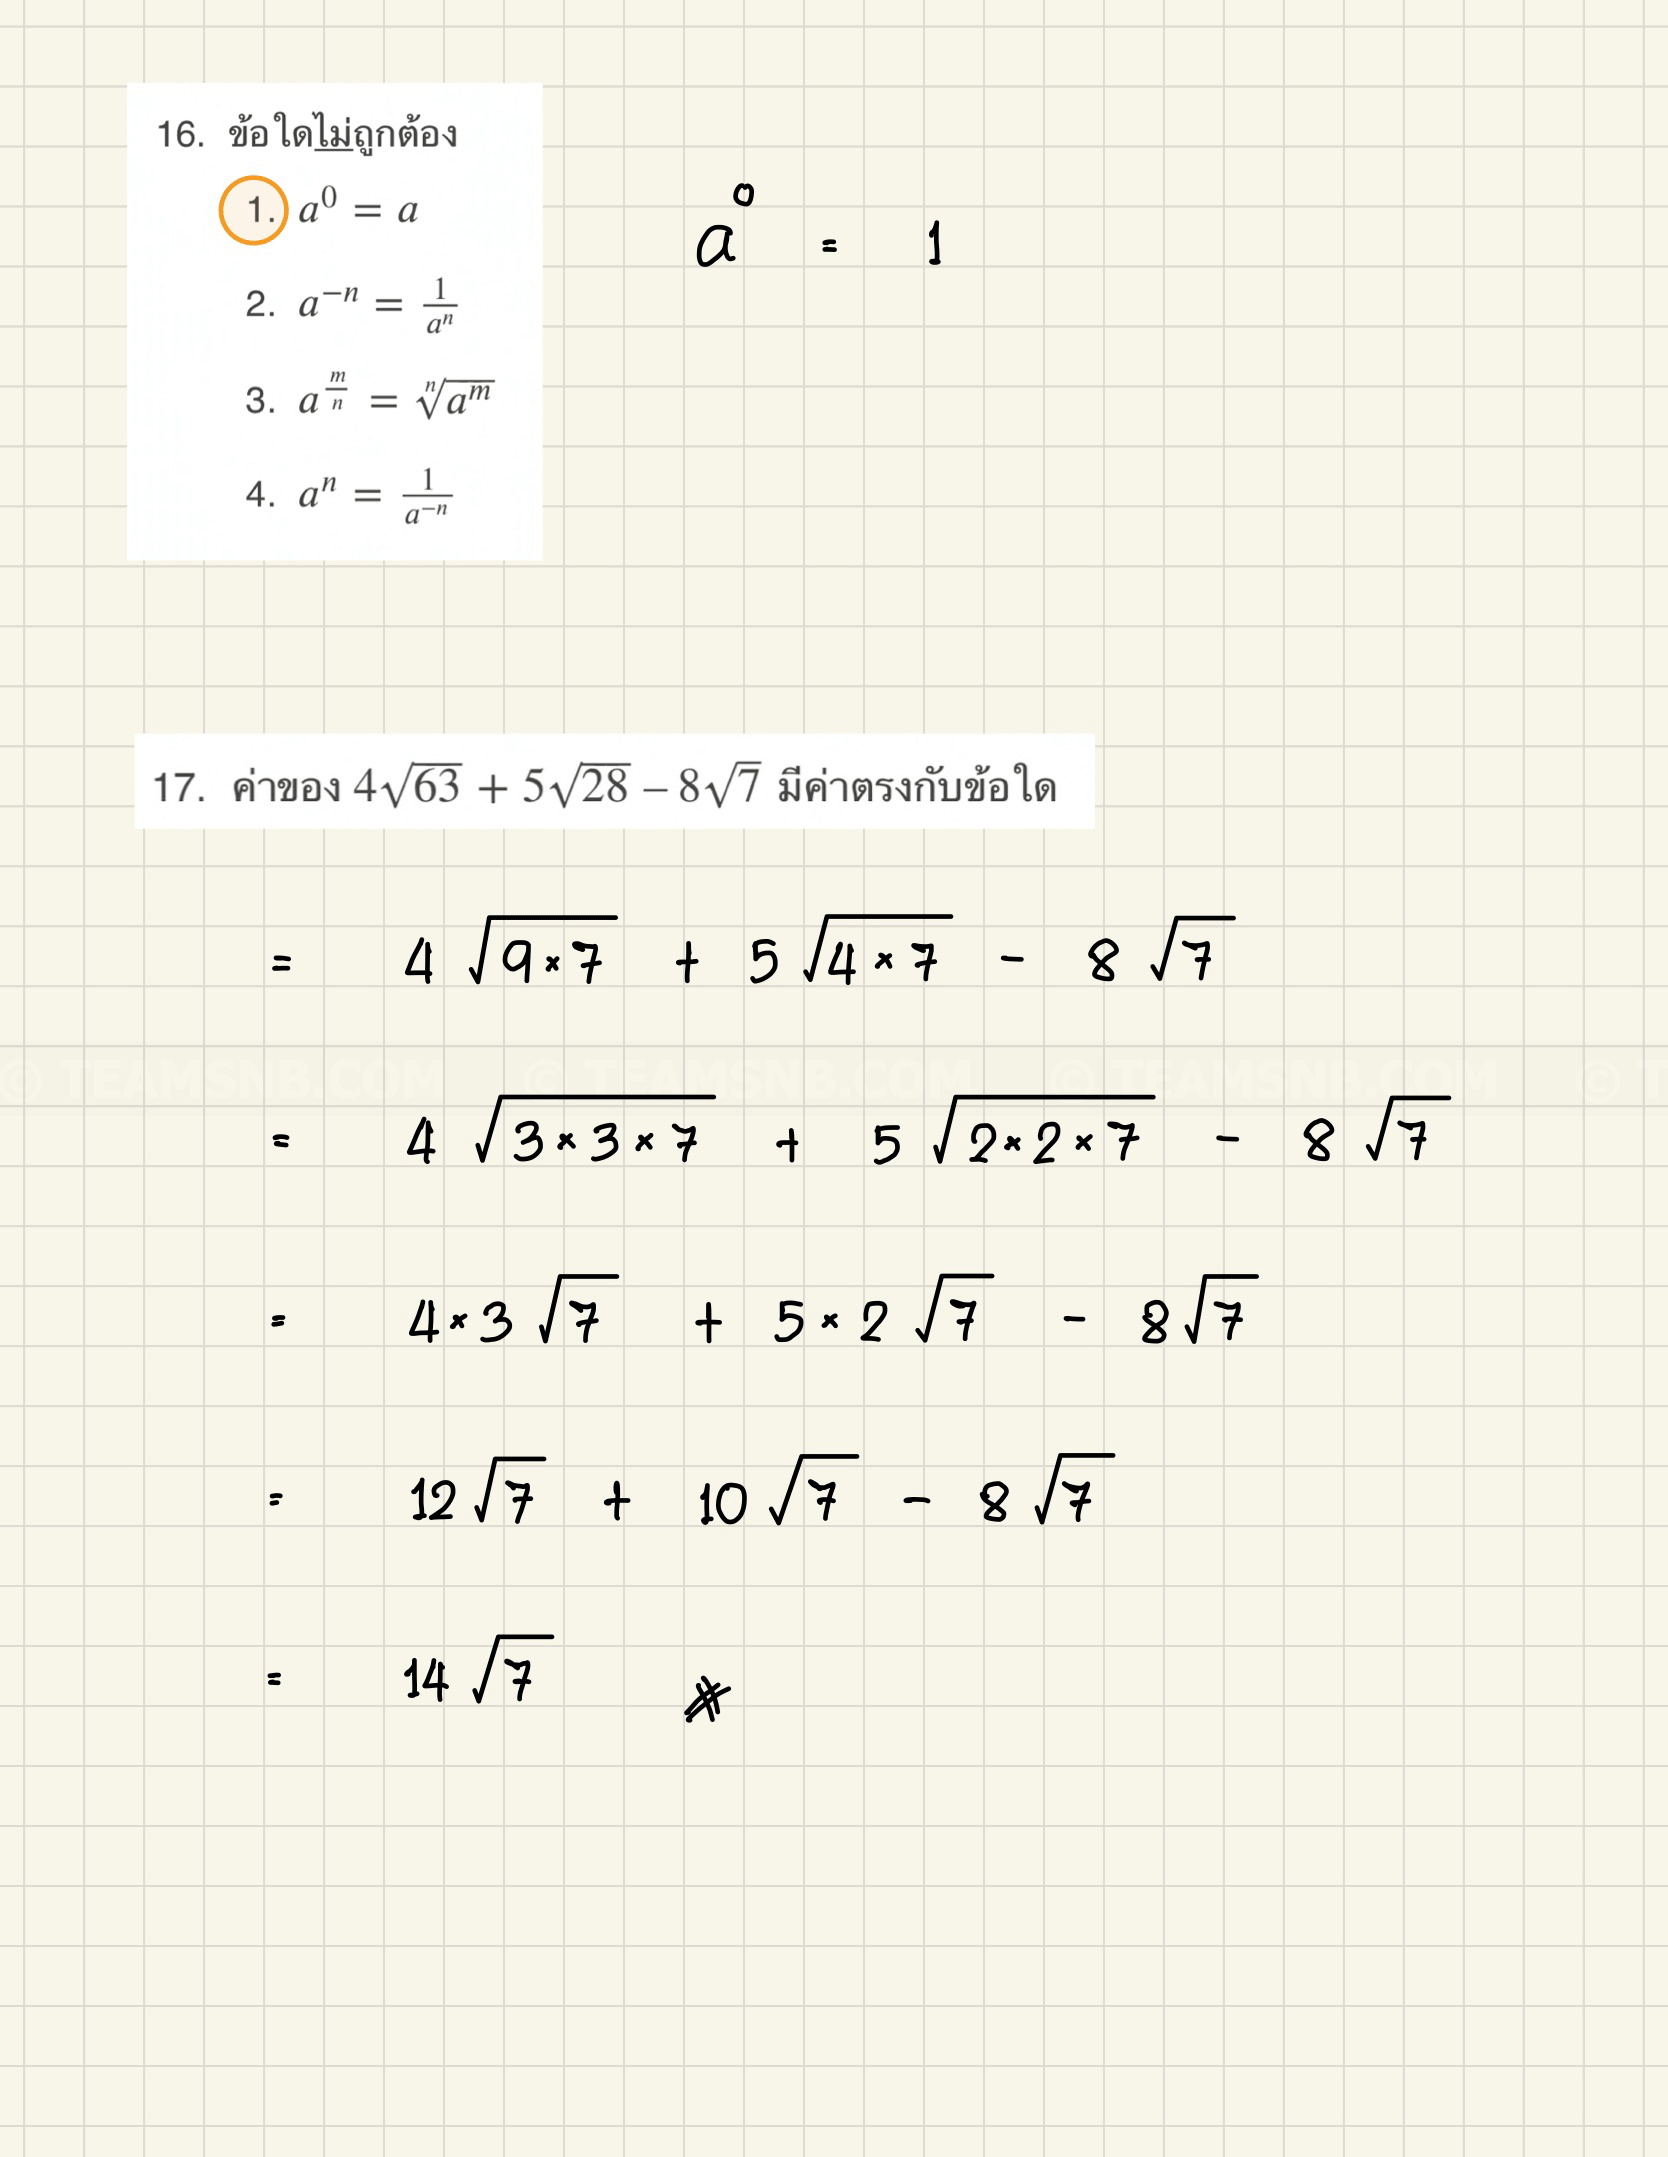 16. ข้อใดไม่ถูกต้อง
1. a⁰ = a
a⁰ = 1
2. a⁻ⁿ = 1/aⁿ
3. a^(m/n) = ⁿ√(aᵐ)
4. aⁿ = 1/a⁻ⁿ
17. ค่าของ 4√63 + 5√28 – 8√7 มีค่าตรงกับข้อใด
= 4 √(9×7) + 5 √(4×7) - 8 √7
© TEAMSNB.COM © TEAMSNB.COM © TEAMSNB.COM © T
= 4 √(3×3×7) + 5 √(2×2×7) - 8 √7
= 4×3 √7 + 5×2 √7 - 8√7
= 12 √7 + 10 √7 - 8 √7
= 14 √7